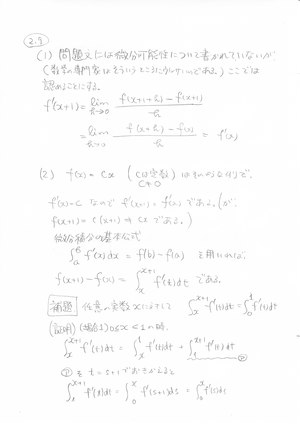 2.9
(1) 問題文には微分可能性について書かれていないが
(数学の専門家はそういうところにうるさいのである。) ここでは
認めることにする。
f'(x+1) = lim_{h→0} \frac{f(x+1+h) - f(x+1)}{h}
= lim_{h→0} \frac{f(x+h) - f(x)}{h} = f'(x)
(2) f(x) = Cx (Cは定数 C≠0) は
f'(x) = C なので f'(x+1) = f'(x) である。(が、
f(x+1) = C(x+1) ≠ Cx である。)
微分積分の基本公式
∫_a^b f'(x)dx = f(b) - f(a) を用いれば、
f(x+1) - f(x) = ∫_x^{x+1} f'(t)dt である。
補題 任意の実数xに対して ∫_x^{x+1} f'(t)dt = ∫_0^1 f'(t)dt
(証明) (場合1) 0≤x<1の時、
∫_x^{x+1} f'(t)dt = ∫_x^1 f'(t)dt + ∫_1^{x+1} f'(t)dt
①
①を t = s+1 でおきかえると
∫_1^{x+1} f'(t)dt = ∫_0^x f'(s+1)ds = ∫_0^x f'(s)ds